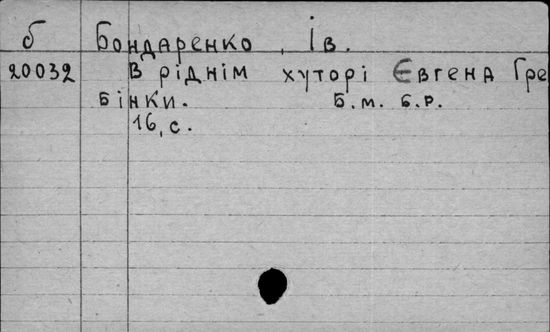 б Бондаренко, Ів.
20032 В ріднім хуторі Євгена Гре
бінки. Б.м. Б.р.
16, с.